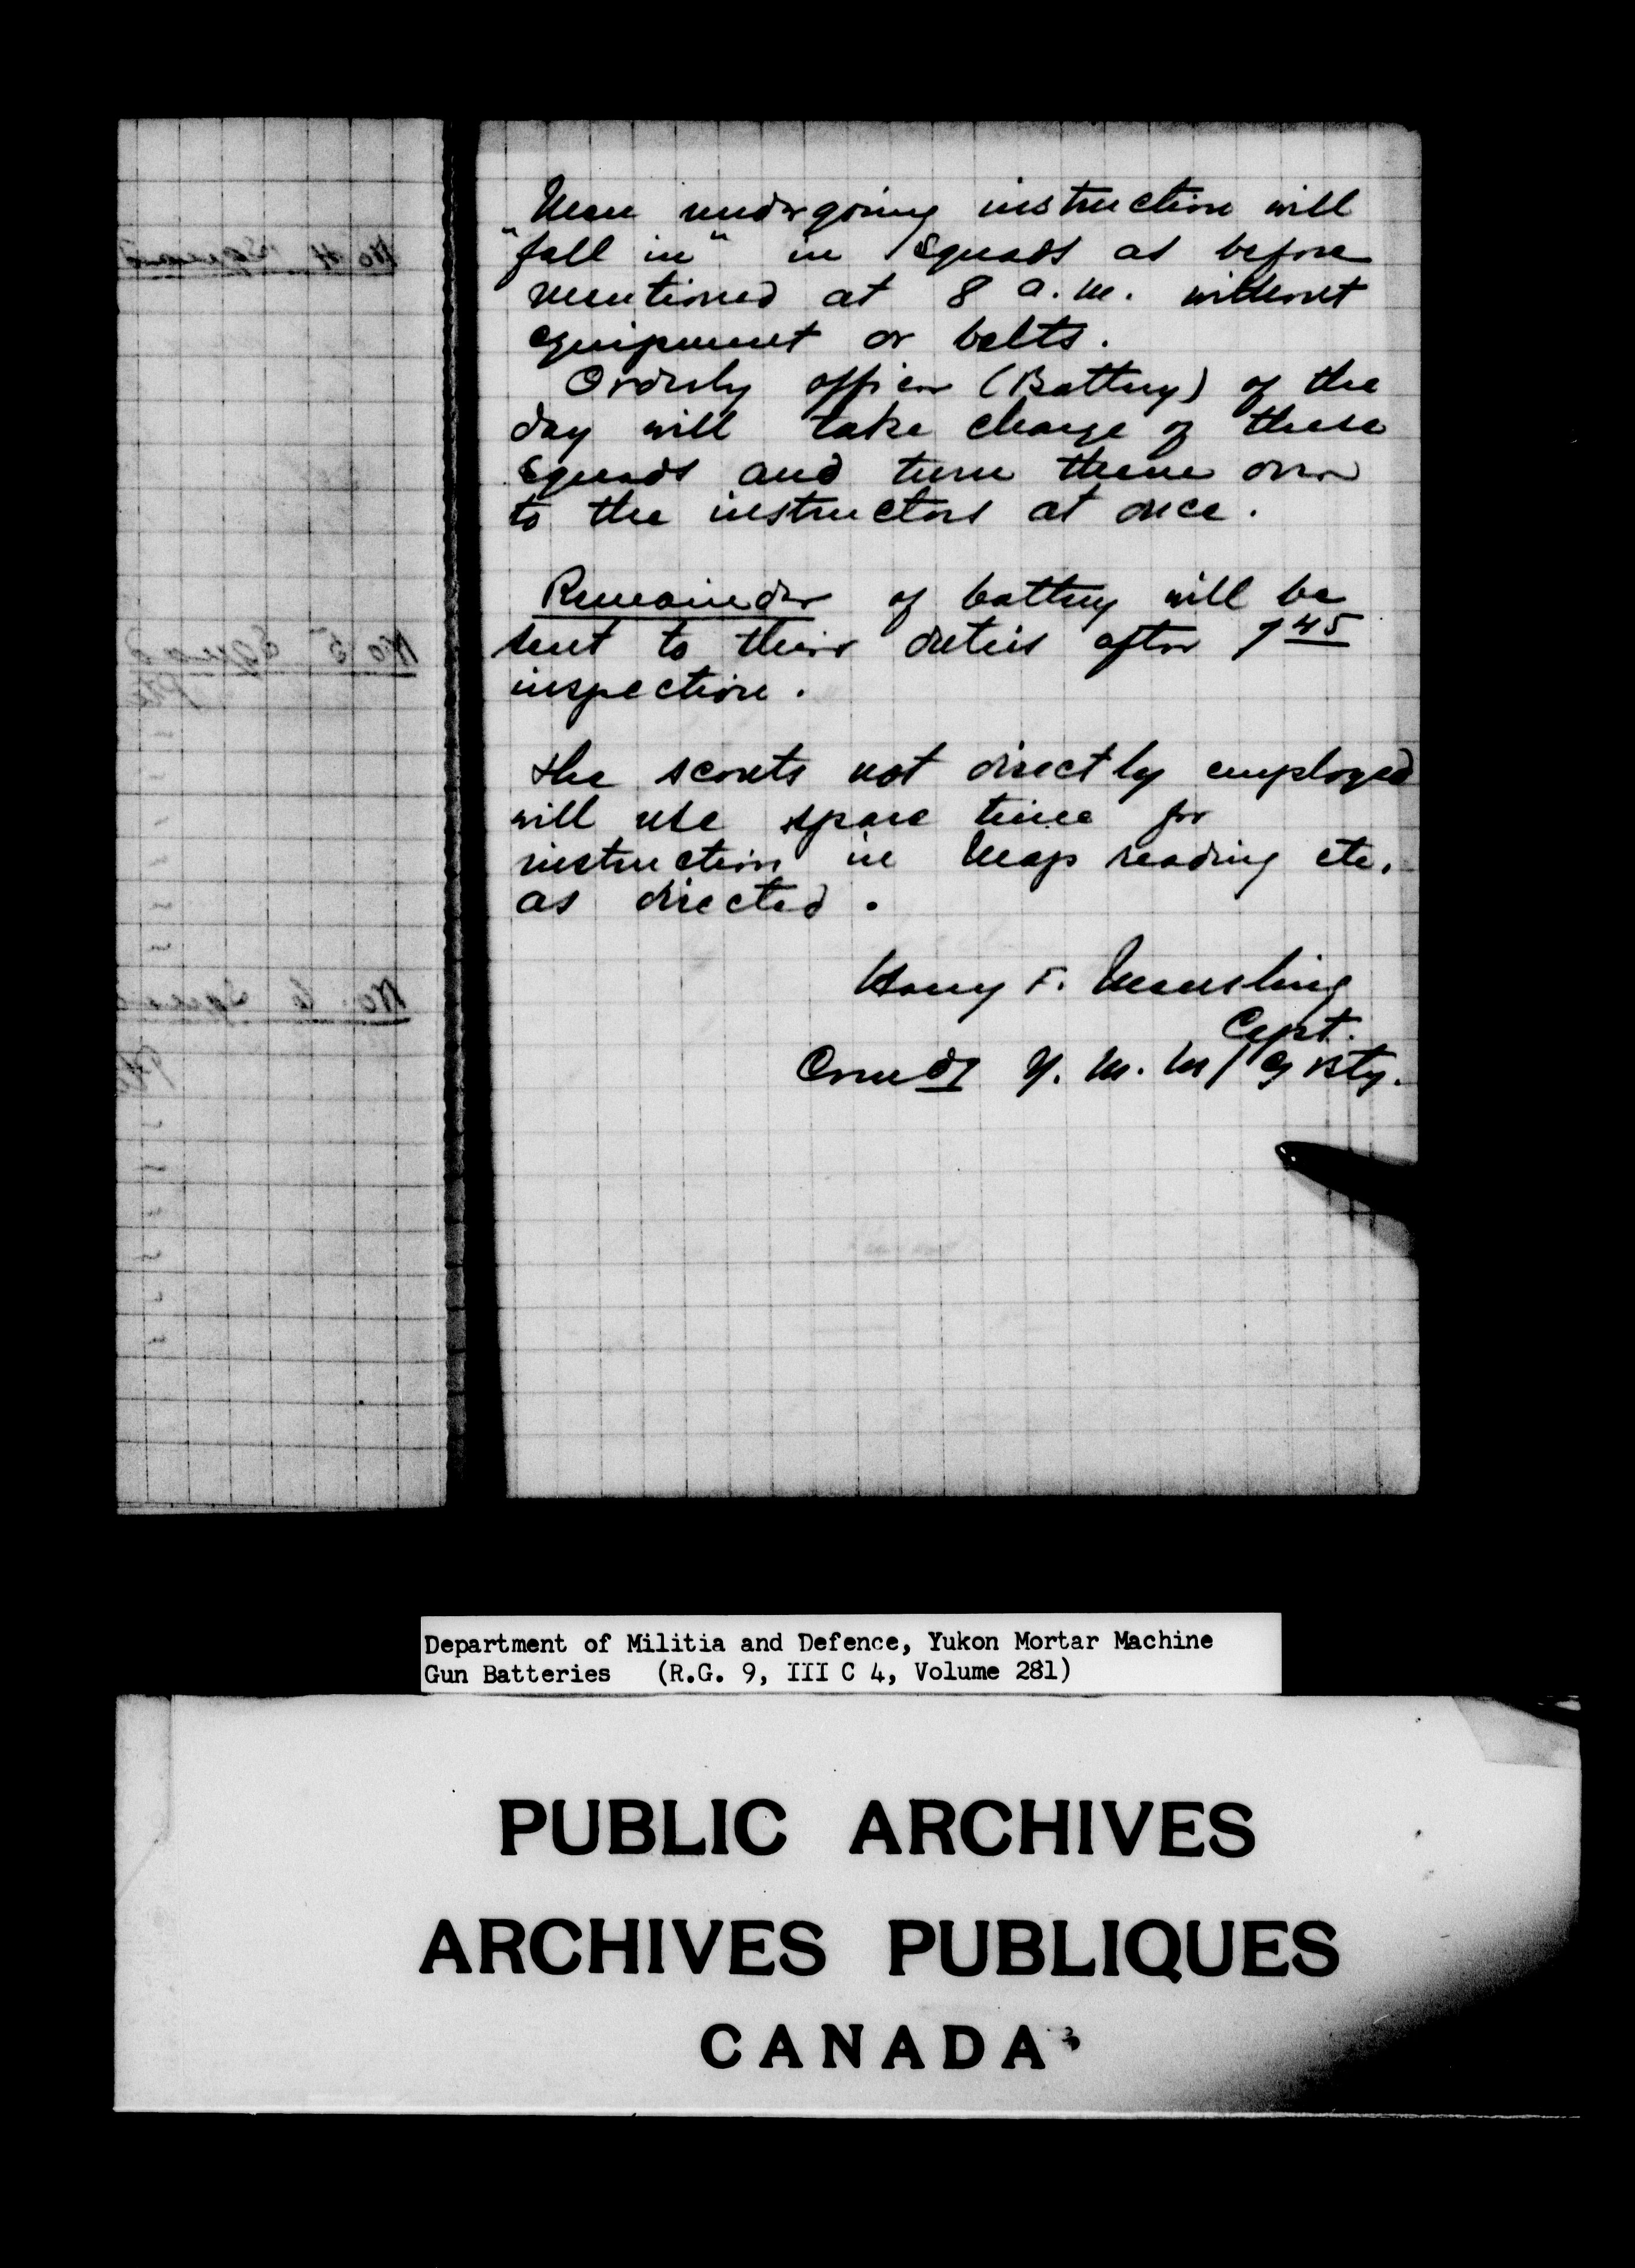 Men undergoing instruction will
"fall in" in squads as before
mentioned at 8 a.m. without
equipment or belts.
Orderly officer (Battery) of the
day will take charge of these
squads and turn them over
to the instructors at once.
Remainder of battery will be
sent to their duties after 7 45
inspection.
The scouts not directly employed
will use spare time for
instruction in Map reading etc.
as directed.
Harry F. Meurling
Capt.
Comdt Y. M. M/G Bty.
No 4 Squad
No 5 Squad
Pte
No. 6 Squad
Pte
Department of Militia and Defence, Yukon Mortar Machine
Gun Batteries (R.G. 9, III C 4, Volume 281)
PUBLIC ARCHIVES
ARCHIVES PUBLIQUES
CANADA